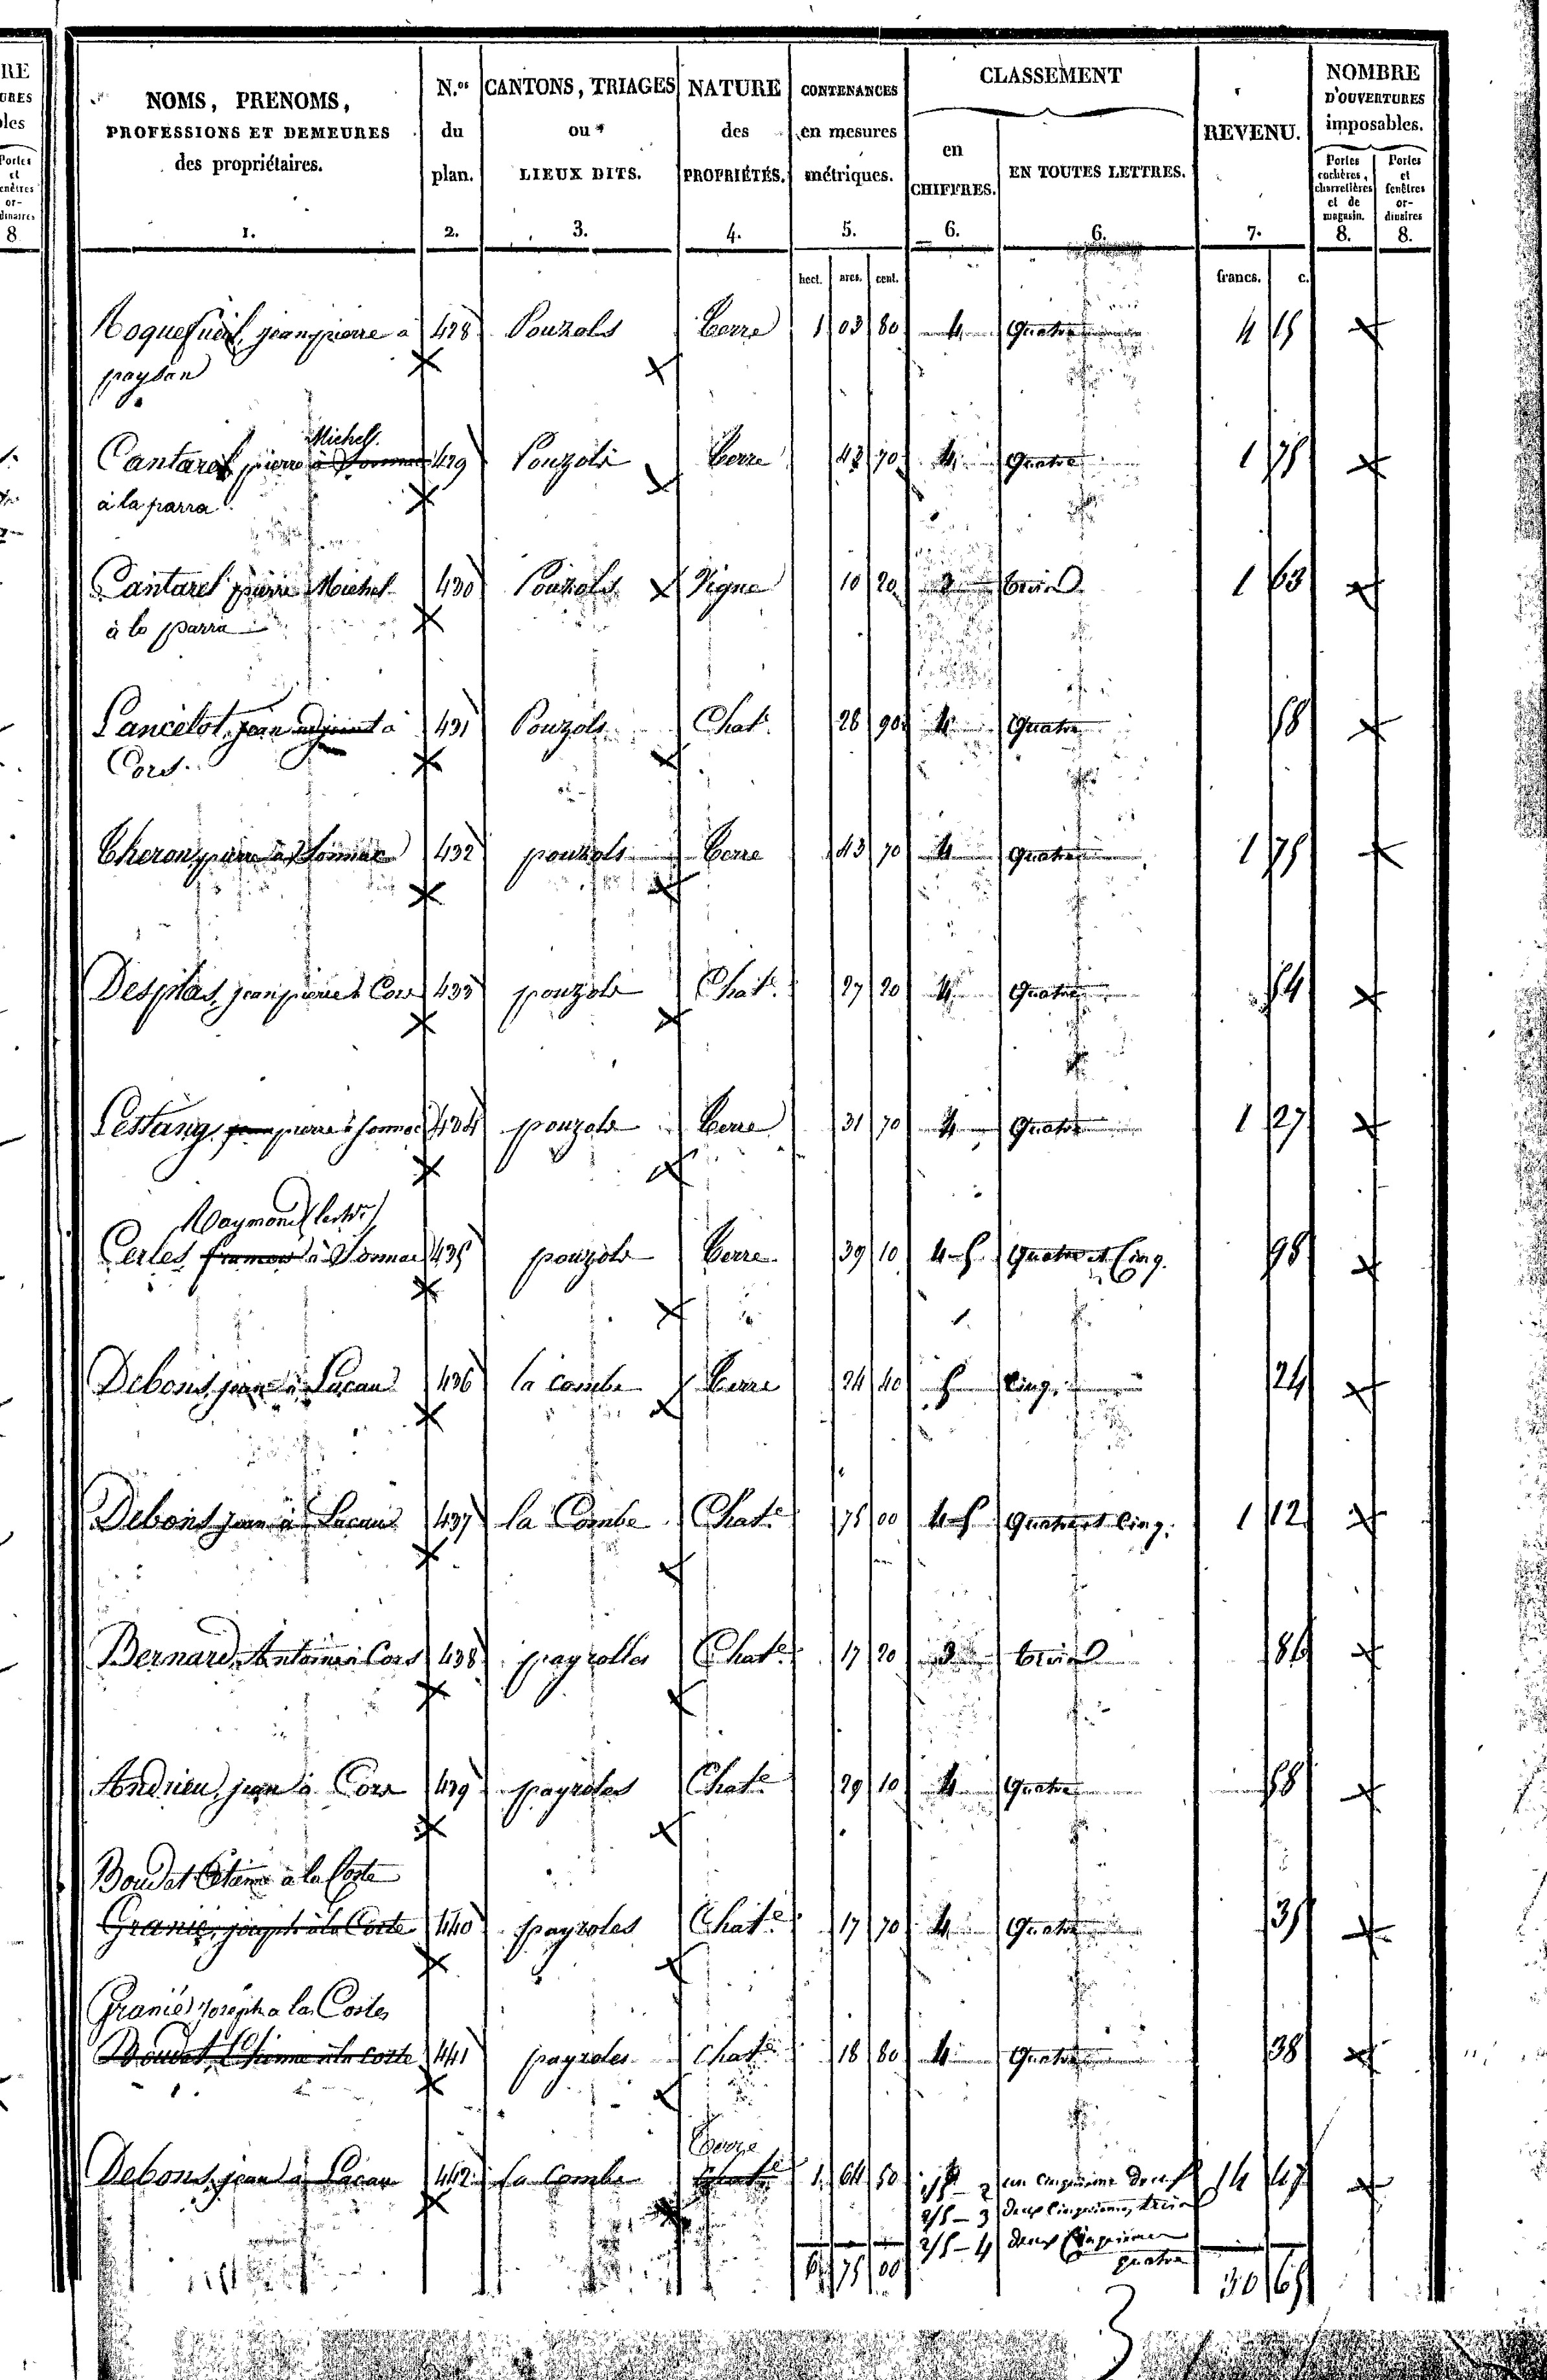 NOMS, PRENOMS, PROFESSIONS ET DEMEURES des propriétaires. N.os du plan. CANTONS, TRIAGES ou LIEUX DITS. NATURE des PROPRIÉTÉS. CONTENANCES en mesures métriques. CLASSEMENT en CHIFFRES. EN TOUTES LETTRES. REVENU. NOMBRE D'OUVERTURES imposables. Portes cochères, charretières et de magasin. Portes et fenêtres ordinaires
1. 2. 3. 4. 5. 6. 6. 7. 8. 8.
hect. ares. cent. francs. c.
Roquefueil, jean pierre à 428 Pouzols Terre 1 03 80 4 Quatre 4 15
paysan
Michel
Cantarel pierre à 429 Pouzols Terre 43 70 4 Quatre 1 75
à la parra
Cantarel pierre Michel 430 Pouzols Vigne 10 20 3 trois 1 63
à la parra
Lancelot, jean adjoint à 431 Pouzols Chat. 28 90 4 Quatre 58
Cors
Theron pierre à 432 pouzols Terre 43 70 4 Quatre 1 75
Desplas, jean pierre à Cors 433 pouzols Chate. 27 20 4 Quatre 54
Lestang, jean pierre à 434 pouzols Terre 31 70 4 Quatre 1 27
Raymond
Cerles à 435 pouzols Terre 39 10 4-5 Quatre et Cinq. 98
Debons, jean à Lacan 436 la combe Terre 24 40 5 Cinq. 24
Debons jean à Lacan 437 la Combe Chate. 75 00 4-5 Quatre et Cinq. 1 12
Bernard, Antoine à Cors 438 payrolles Chate. 17 20 3 trois 86
Andrieu, jean à Cors 439 payroles Chate 29 10 4 Quatre 58
Boudet Etienne à la Coste
Granié, joseph à la Coste 440 payroles Chate. 17 70 4 Quatre 35
Granié joseph a la Coste
Boudet, Etienne à la coste 441 payroles Chate 18 80 4 Quatre 38
Terre
Debons, jean à Lacan 442 la Combe Chate 1 64 50 1/5 - 2 un cinquième deux 14 47
2/5 - 3 deux Cinquièmes, trois
2/5 - 4 deux Cinquièmes
quatre
6 75 00 30 65
3